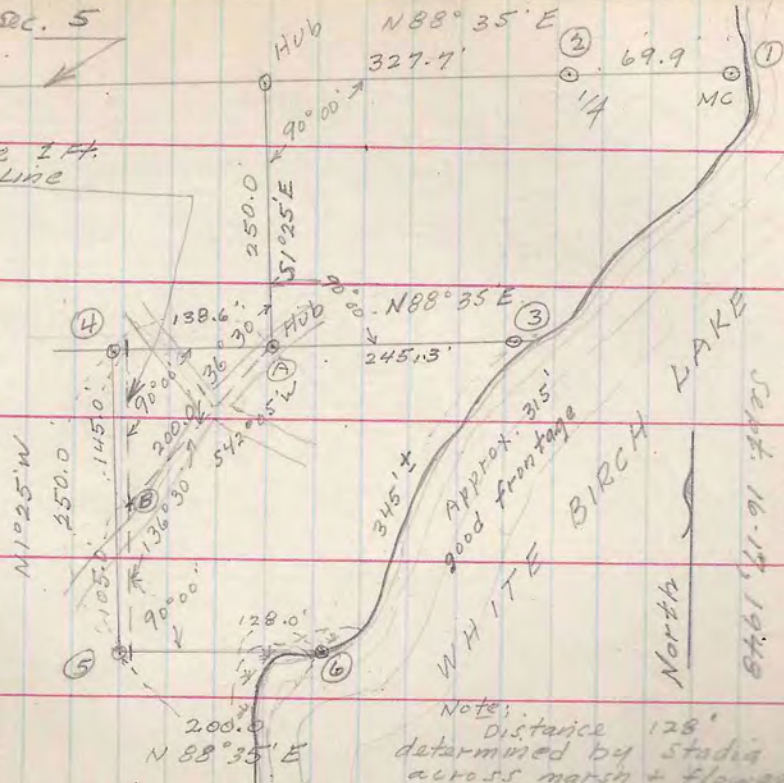 Sec. 5
Hub
N88°35'E
327.7'
②
69.9'
①
1/4
MC
90°00'
1 Ft.
Line
250.0
S1°25'E
90°00'
N88°35'E
④
138.6'
Hub
③
136°30'
Ⓐ
245.3'
90°00'
200.0
S42°05'W
145.0'
N1°25'W
250.0
Ⓑ
136°30'
345'±
Approx. 315'
good frontage
WHITE BIRCH LAKE
North
Sept. 16-17, 1948
105.0'
90°00'
128.0'
⑤
⑥
200.0
N88°35'E
Note:
Distance 128'
determined by stadia
across marsh